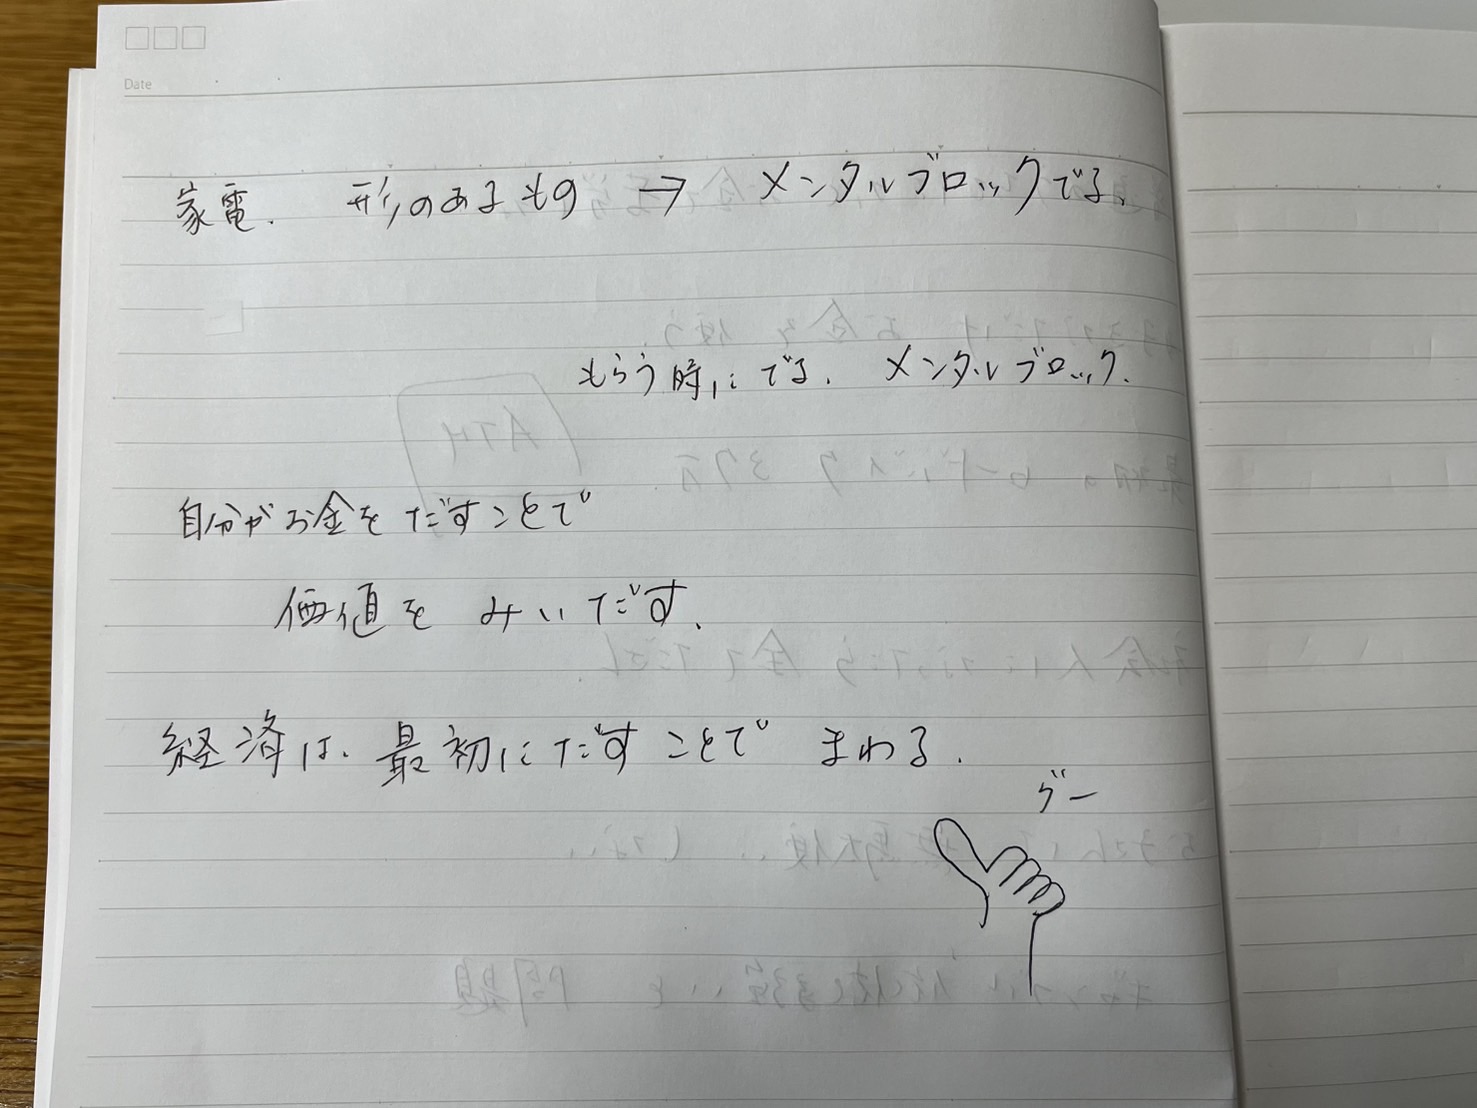 Date
家電. 形のあるもの → メンタルブロックでる.
もらう時にでる. メンタルブロック.
自分がお金をだすことで
価値をみいだす.
経済は. 最初にだすことで まわる.
グー